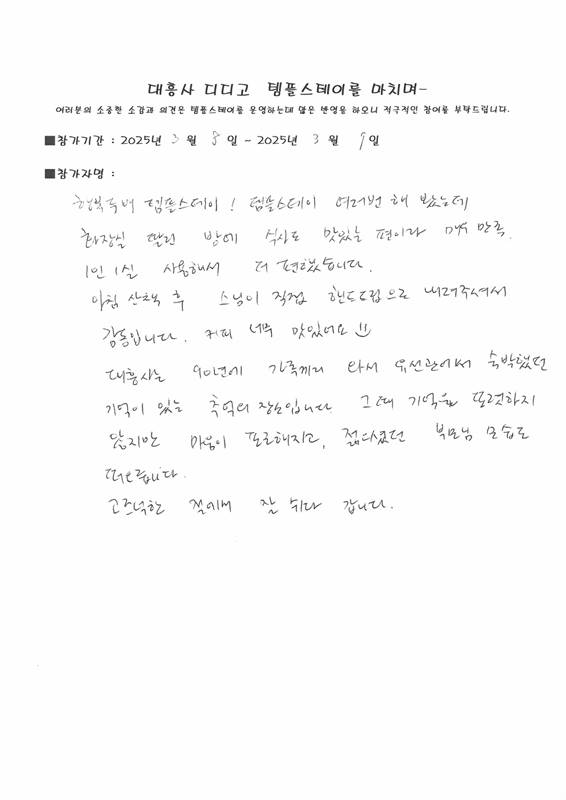 대흥사 디디고 템플스테이를 마치며-
여러분의 소중한 소감과 의견은 템플스테이를 운영하는데 많은 반영을 하오니 적극적인 참여를 부탁드립니다.
■참가기간 : 2025년 3 월 8 일 ~ 2025년 3 월 9 일
■참가자명 :
행복두배 템플스테이! 템플스테이 여러번 해 봤는데
화장실 딸린 방에 식사도 맛있는 편이라 매우 만족.
1인 1실 사용해서 더 편했습니다.
아침 산책 후 스님이 직접 핸드드립으로 내려주셔서
감동입니다. 커피 너무 맛있어요 ☺
대흥사는 90년에 가족끼리 와서 유선관에서 숙박했던
기억이 있는 추억의 장소입니다 그때 기억은 또렷하지
않지만 마음이 포근해지고, 젊으셨던 부모님 모습도
떠오릅니다.
고즈넉한 절에서 잘 쉬다 갑니다.